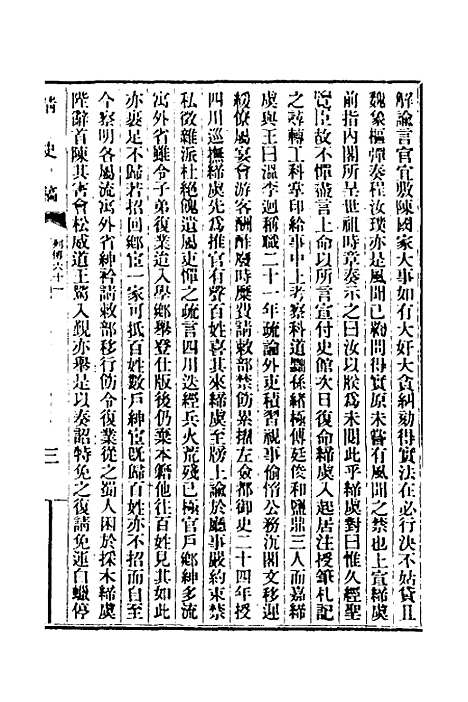 解諭言官宜敷陳國家大事如有大奸大貪糾劾得實法在必行決不姑貸且
魏象樞彈奏程汝璞亦是風聞已鞫問得實原未嘗有風聞之禁也上宣締虞
前指內閣所呈世祖時章奏示之曰汝以朕爲未閱此乎締虞對曰惟久經聖
覽臣故不憚盡言上命以所言宣付史館次日復命締虞入起居注授筆札記
之尋轉工科掌印給事中上考察科道黜孫緒極傅廷俊和鹽鼎三人而嘉締
虞與王曰溫李迥稱職二十一年疏論外吏積習視事偷惰公務沉閣文移遲
緩僚屬宴會游客酬酢廢時糜費請敕部禁飭累擢左僉都御史二十四年授
四川巡撫締虞先爲推官有聲百姓喜其來締虞至牓上諭於廳事嚴約束禁
私徵雜派杜絕餽遺屬吏憚之疏言四川迭經兵火荒殘已極官戶鄉紳多流
寓外省雖令子弟復業道入學鄉舉登仕版後仍棄本籍他往百姓見其如此
亦裹足不歸若招回鄉宦一家可抵百姓數戶紳宦旣歸百姓亦不招而自至
今察明各屬流寓外省紳衿請敕部移行飭令復業從之蜀人困於採木締虞
陛辭首陳其害會松威道王騭入覲亦舉是以奏詔特免之復請免運白蠟停
清史稿 列傳六十一 三